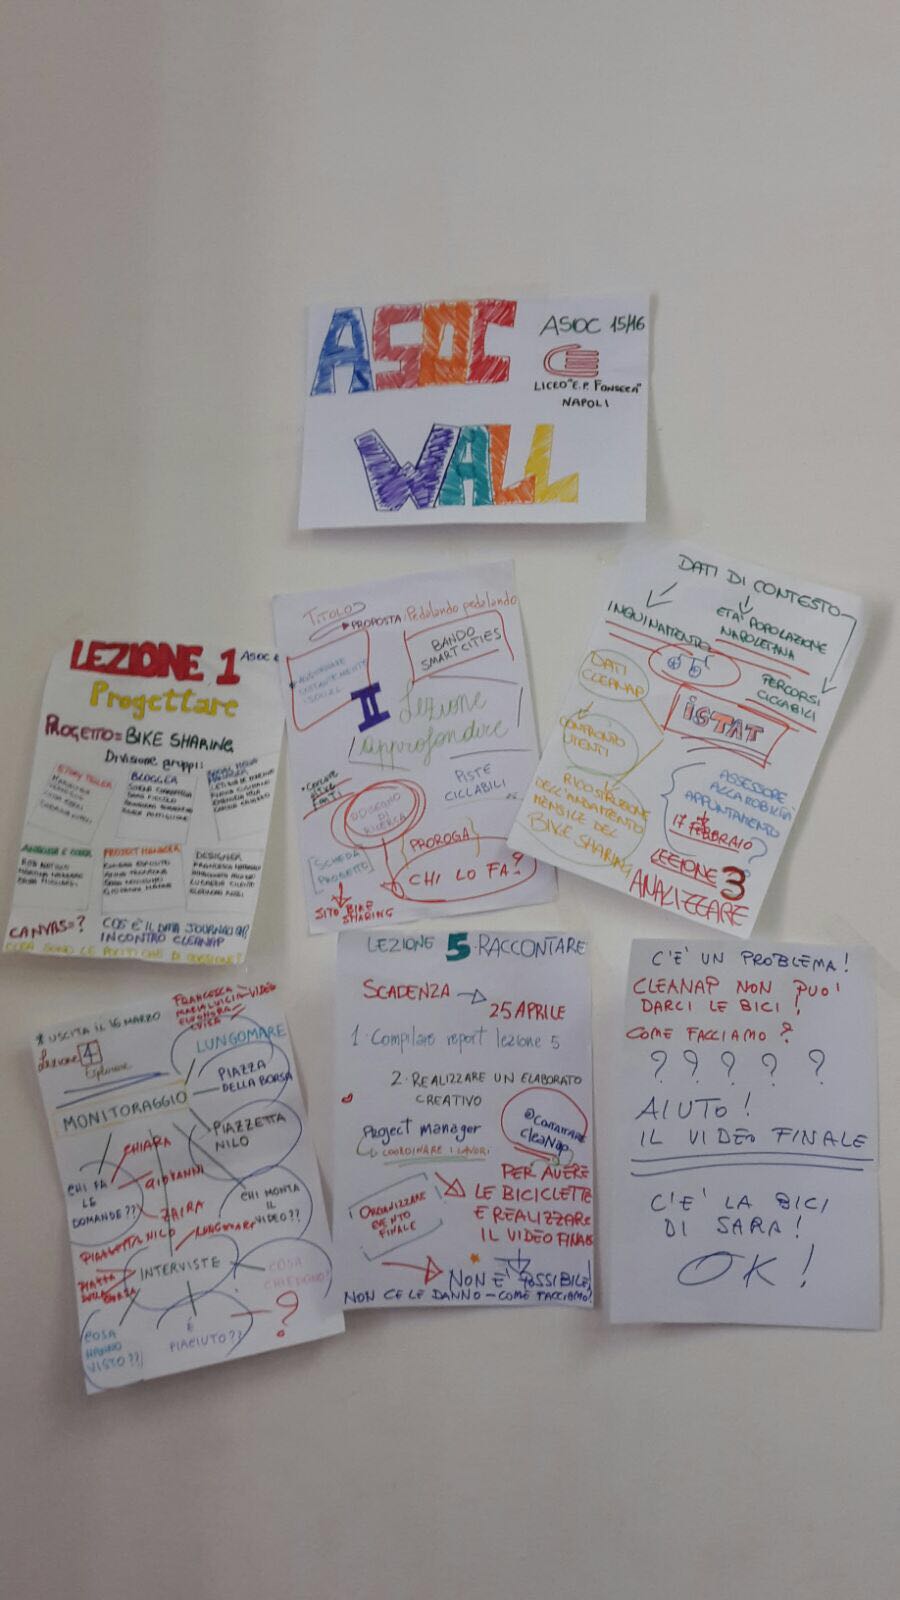 ASOC
WALL
ASOC 15/16
LICEO "E.P. FONSECA"
NAPOLI
LEZIONE 1
ASOC
Progettare
PROGETTO = BIKE SHARING
Divisione gruppi:
STORY TELLER
BLOGGER
SOCIAL MEDIA
MANAGER
PROJECT MANAGER
DESIGNER
CANVAS = ?
COS'È IL DATA JOURNALISM
INCONTRO CLEANAP
TITOLO
PROPOSTA: Pedalando pedalando
BANDO
SMART CITIES
II Lezione
Approfondire
PISTE
CICLABILI
DISEGNO
DI
RICERCA
SCHEDA
PROGETTO
PROROGA
CHI LO FA?
SITO BIKE
SHARING
DATI DI CONTESTO
INQUINAMENTO
ETA' POPOLAZIONE
NAPOLETANA
PERCORSI
CICLABILI
DATI
CLEANAP
ISTAT
CONFRONTO
UTENTI
RICOSTRUZIONE
DELL'ANDAMENTO
MENSILE DEL
BIKE SHARING
ASSESSORE
ALLA MOBILITÀ
APPUNTAMENTO
17 FEBBRAIO
?
LEZIONE 3
ANALIZZARE
* USCITA IL 16 MARZO
FRANCESCA
VIDEO
ELEONORA
LUISA
Lezione 4
Esplorare
LUNGOMARE
PIAZZA
DELLA BORSA
MONITORAGGIO
PIAZZETTA
NILO
CHIARA
GIOVANNI
ZAIRA
CHI FA
LE
DOMANDE??
CHI MONTA
IL
VIDEO??
PIAZZETTA NILO
LUNGOMARE
PIAZZA
DELLA
BORSA
INTERVISTE
COSA
CHIEDONO?
?
COSA
HANNO
VISTO??
È
PIACIUTO??
LEZIONE 5 - RACCONTARE
SCADENZA
25 APRILE
1. Compilare report lezione 5
2. REALIZZARE UN ELABORATO
CREATIVO
Project manager
COORDINARE I LAVORI
@CONTATTARE
cleaNap
PER AVERE
LE BICICLETTE
E REALIZZARE
IL VIDEO FINALE
ORGANIZZARE
EVENTO
FINALE
NON È POSSIBILE!
NON CE LE DANNO - COME FACCIAMO?
C'E' UN PROBLEMA!
CLEANAP NON PUO'
DARCI LE BICI!
COME FACCIAMO?
? ? ? ? ?
AIUTO!
IL VIDEO FINALE
C'E' LA BICI
DI SARA!
OK!